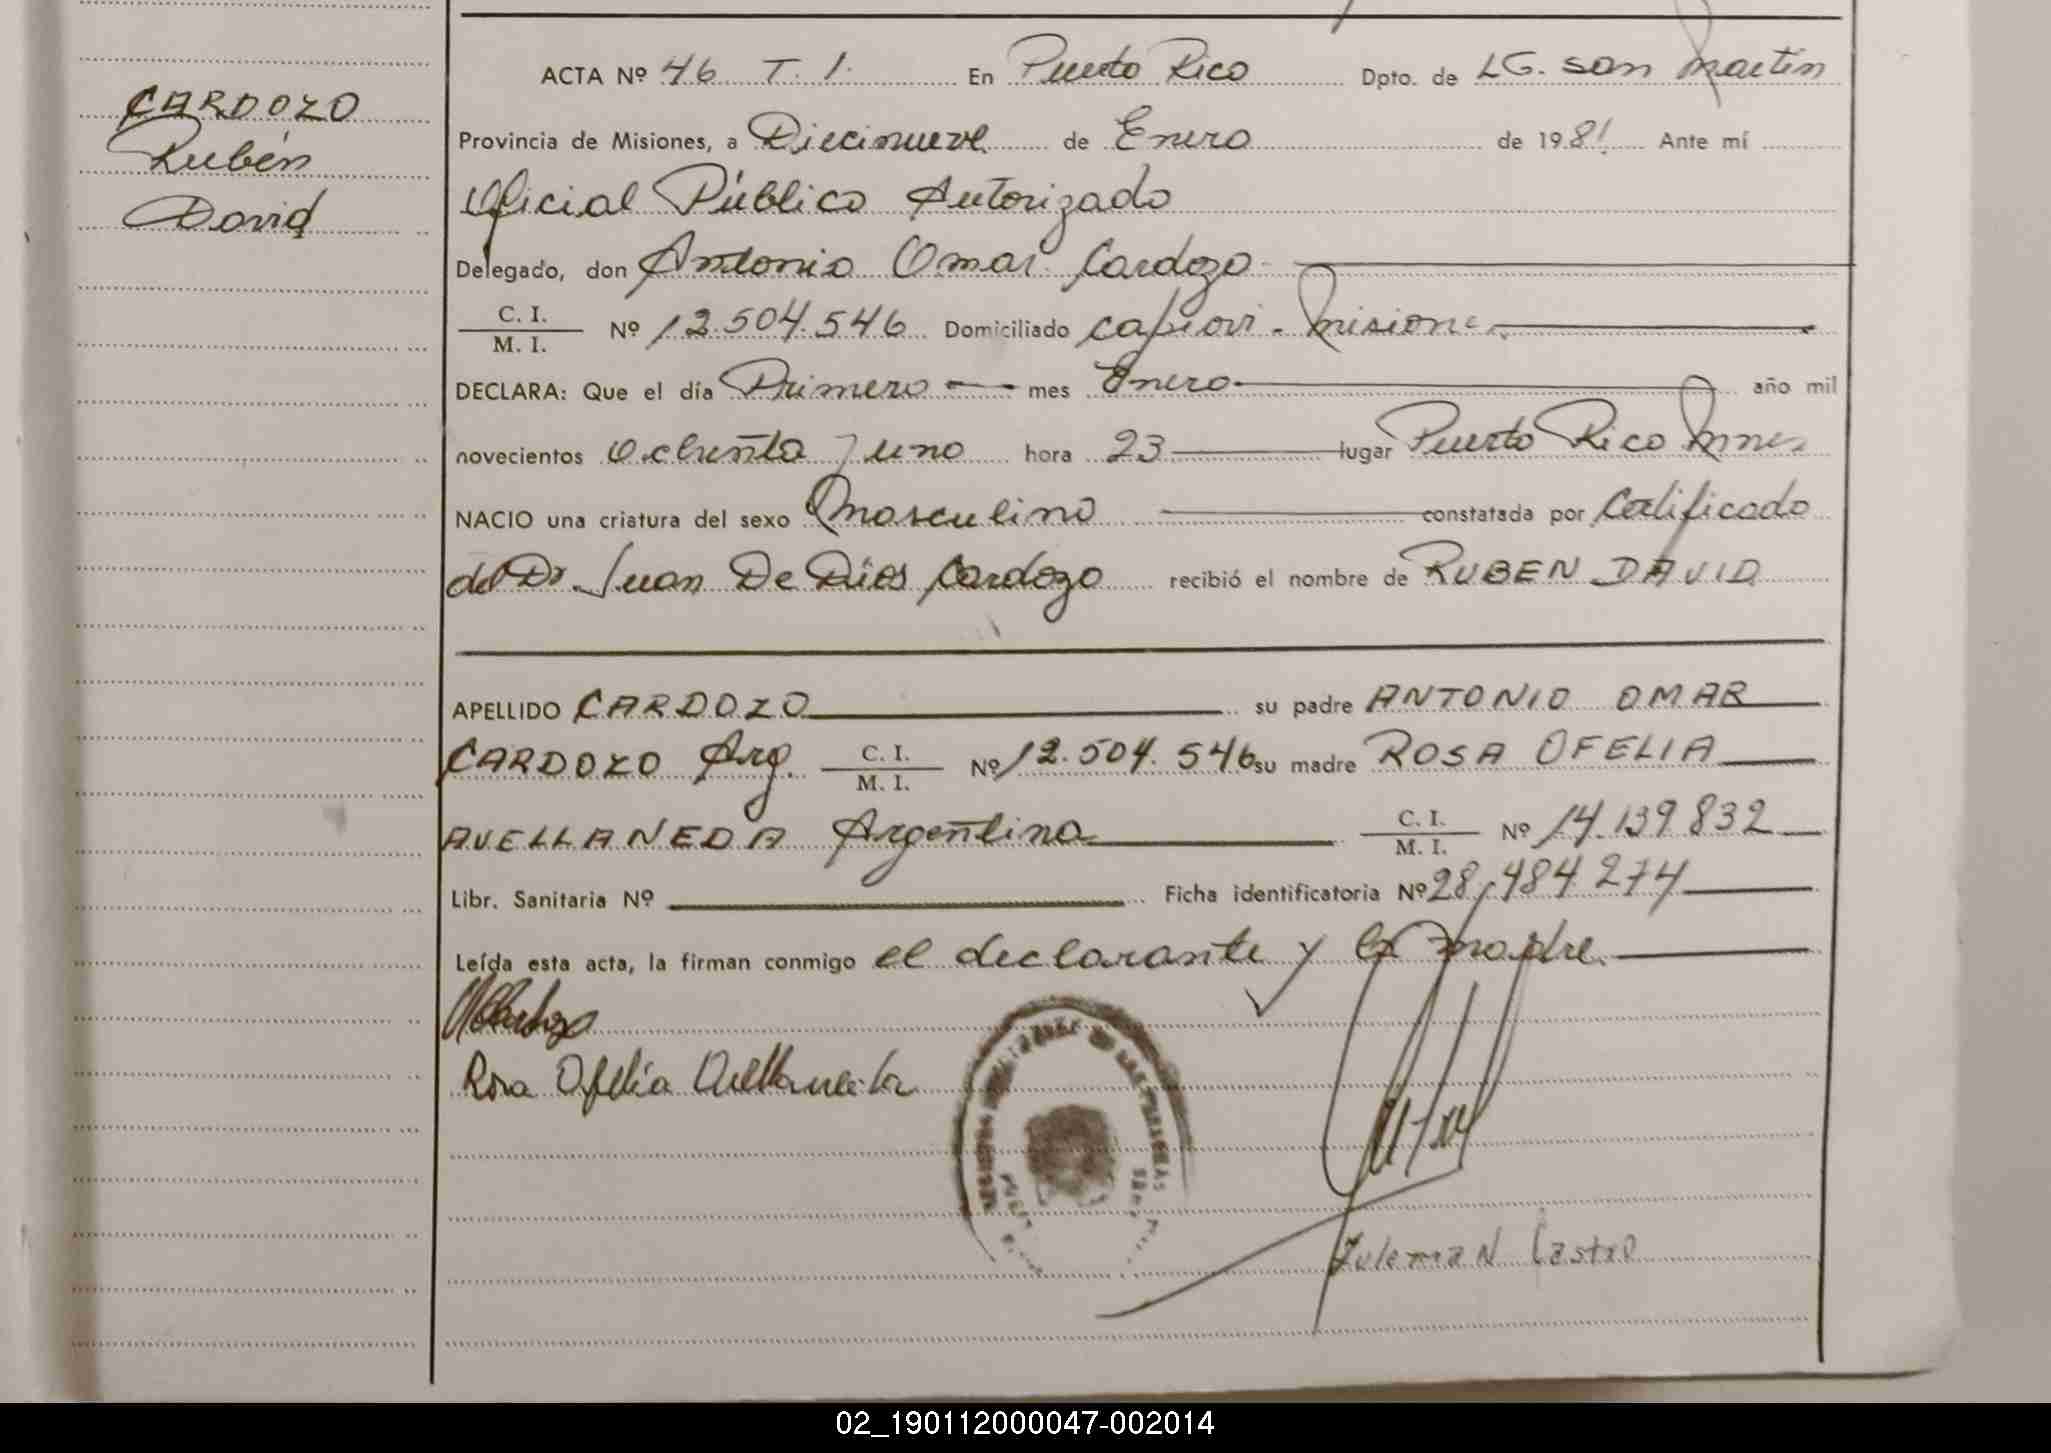 CARDOZO
Rubén
David
ACTA Nº 46 T. 1. En Puerto Rico Dpto. de LG. San Martín
Provincia de Misiones, a Diecinueve de Enero de 1981. Ante mí
Oficial Público Autorizado
Delegado, don Antonio Omar Cardozo
C. I.
M. I. Nº 12.504.546 Domiciliado Capiovi - Misiones
DECLARA: Que el día Primero mes Enero año mil
novecientos Ochenta y uno hora 23 lugar Puerto Rico Mnes
NACIO una criatura del sexo Masculino constatada por Certificado
del Dr. Juan De Dios Cardozo recibió el nombre de RUBEN DAVID
APELLIDO CARDOZO su padre ANTONIO OMAR
CARDOZO Arg. C. I.
M. I. Nº 12.504.546 su madre ROSA OFELIA
AVELLANEDA Argentina C. I.
M. I. Nº 14.139.832
Libr. Sanitaria Nº Ficha identificatoria Nº 28.484.274
Leída esta acta, la firman conmigo el declarante y la madre.
Rosa Ofelia Avellaneda
Zulema N Castro
02_190112000047-002014